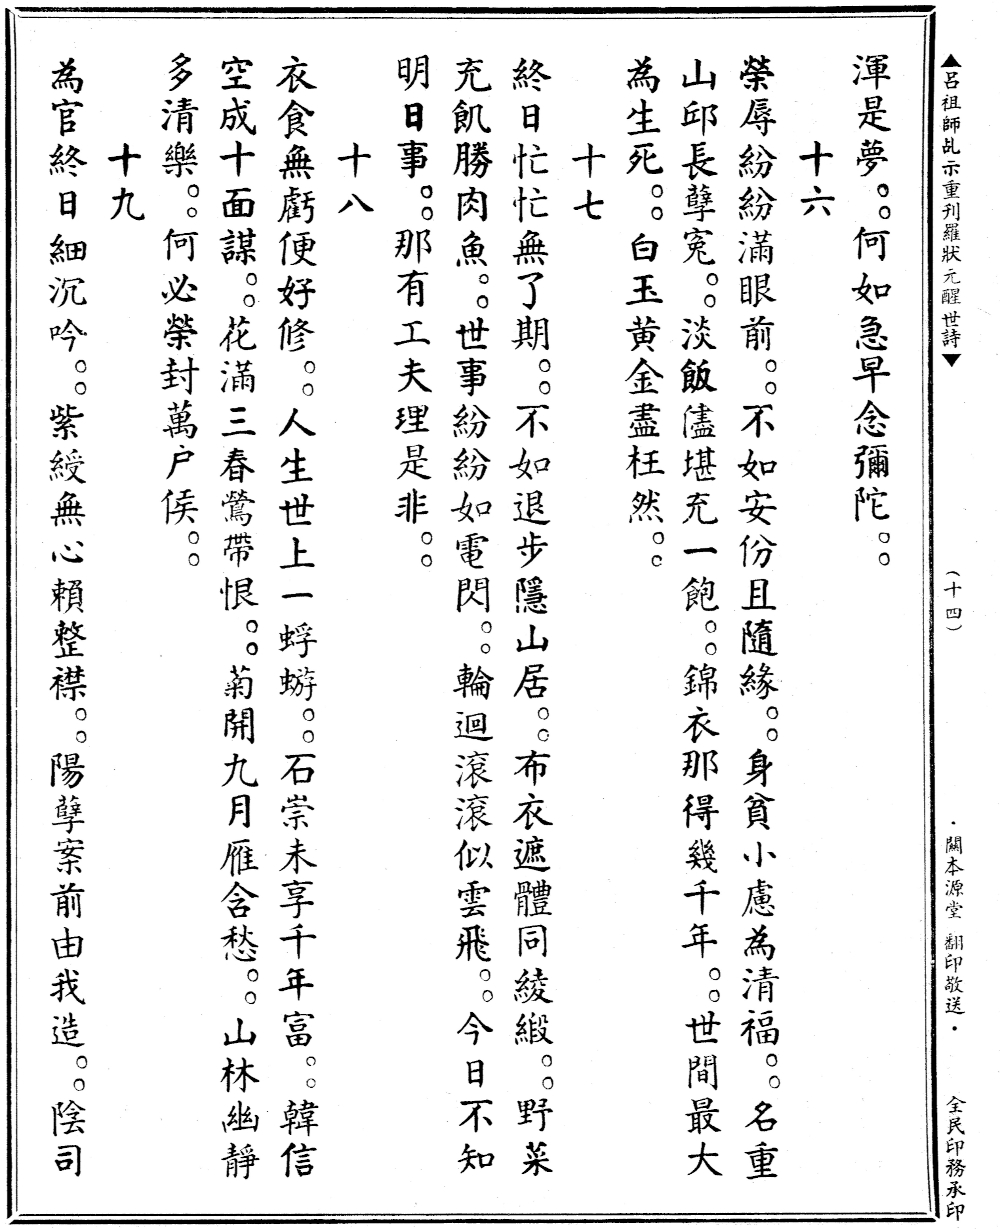 ▲呂祖師乩示重刋羅狀元醒世詩▼
(十四)
·闗本源堂 翻印敬送·
全民印務承印
渾是夢。。何如急早念彌陀。。
十六
榮辱紛紛滿眼前。。不如安份且隨緣。。身貧小慮為清福。。名重
山邱長孽寃。。淡飯儘堪充一飽。。錦衣那得幾千年。。世間最大
為生死。。白玉黄金盡枉然。。
十七
終日忙忙無了期。。不如退步隱山居。。布衣遮體同綾緞。。野菜
充飢勝肉魚。。世事紛紛如電閃。。輪迴滾滾似雲飛。。今日不知
明日事。。那有工夫理是非。。
十八
衣食無虧便好修。。人生世上一蜉蝣。。石崇未享千年富。。韓信
空成十面謀。。花滿三春鶯帶恨。。菊開九月雁含愁。。山林幽靜
多清樂。。何必榮封萬户侯。。
十九
為官終日細沉吟。。紫綬無心賴整襟。。陽孽案前由我造。。陰司